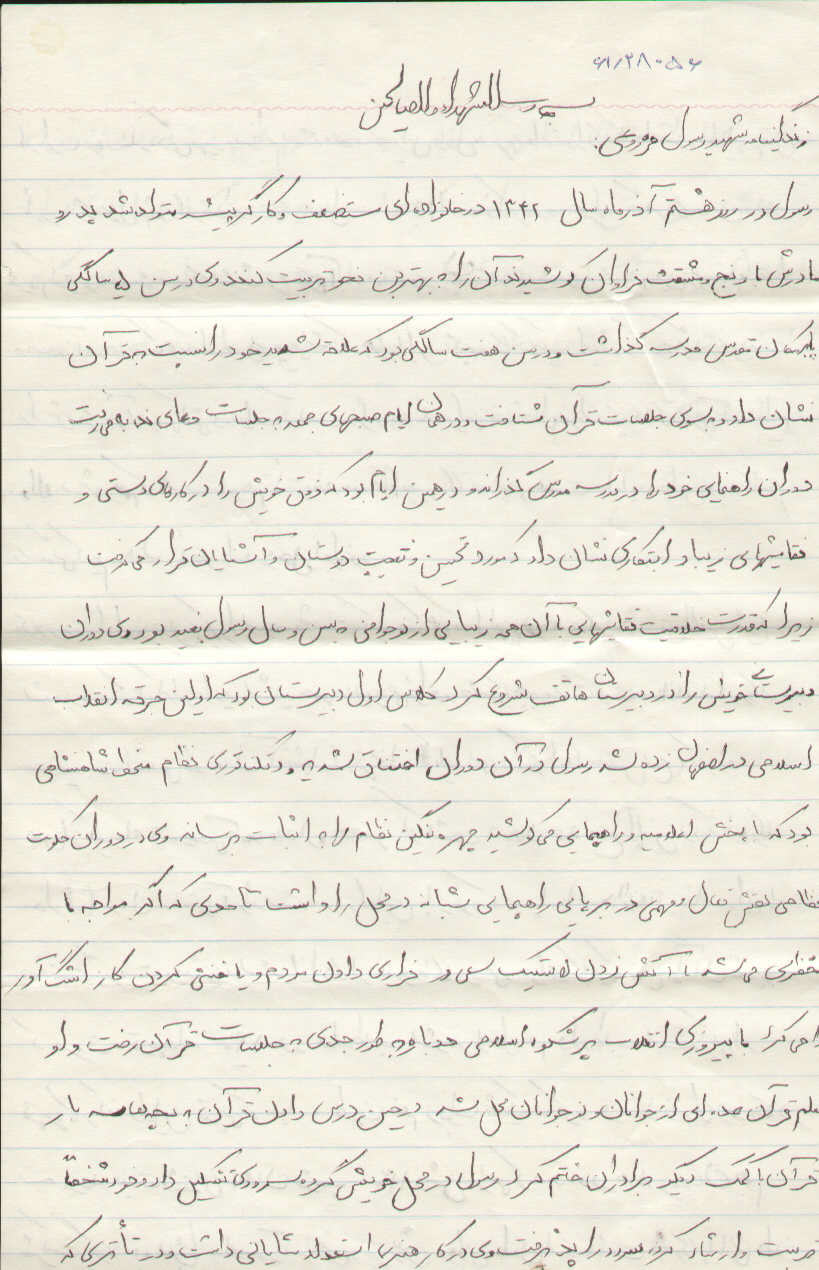 ۶۱/۲۸۰۵۶
بسم رب الشهداء و الصالحین
زندگینامه شهید رسول
رسول در روز هشتم آذرماه سال ۱۳۴۲ در خانواده ای مستضعف و کارگر پیشه متولد شد پدر و
مادرش با رنج و مشقت فراوان کوشیدند آن را به بهترین نحو تربیت کنند وی در سن سالگی
پا به مکان مقدس مدرسه گذاشت و در سن هفت سالگی بود که علاقه شدید خود را نسبت به قرآن
نشان داد و به سوی جلسات قرآن شتافت و در همان ایام صبحهای جمعه به جلسات دعای ندبه می رفت
دوران راهنمایی خود را در مدرسه مدرس گذراند و در همین ایام بود که ذوق خویش را در کارهای دستی و
نقاشیهای زیبا و ابتکاری نشان داد که مورد تحسین و تعجب دوستان و آشنایان قرار می گرفت
زیرا که قدرت خلاقیت نقاشیهایی با آن همه زیبایی از نوجوانی به سن و سال رسول بعید بود وی دوران
دبیرستانی خویش را در دبیرستان هاتف شروع کرد کلاس اول دبیرستان بود که اولین جرقه انقلاب
اسلامی در اصفهان زده شد رسول در آن دوران اختناق و دیکتاتوری نظام منحط شاهنشاهی
بود که با پخش اعلامیه و راهپیمایی می کوشید چهره ننگین نظام را به اثبات برساند وی در دوران حکومت
نظامی نقش فعال و مهمی در برپایی راهپیمایی شبانه در محل را داشت تا حدی که اگر مواجه با
خطری می شد با آتش زدن لاستیک سعی در فراری دادن مردم و یا خنثی کردن گاز اشک آور
را می کرد با پیروزی انقلاب پر شکوه اسلامی دوباره به طور جدی به جلسات قرآن رفت و او
معلم قرآن عده ای از جوانان و نوجوانان محل شد در حین درس دادن قرآن به بچه ها سه بار
قرآن با کمک دیگر برادران ختم کرد رسول در محل خویش گروه سرودی تشکیل داد و خود شخصاً
تربیت و ارشاد گروه سرود را پذیرفت وی در کار هنری استعداد شایانی داشت و در تأتری که